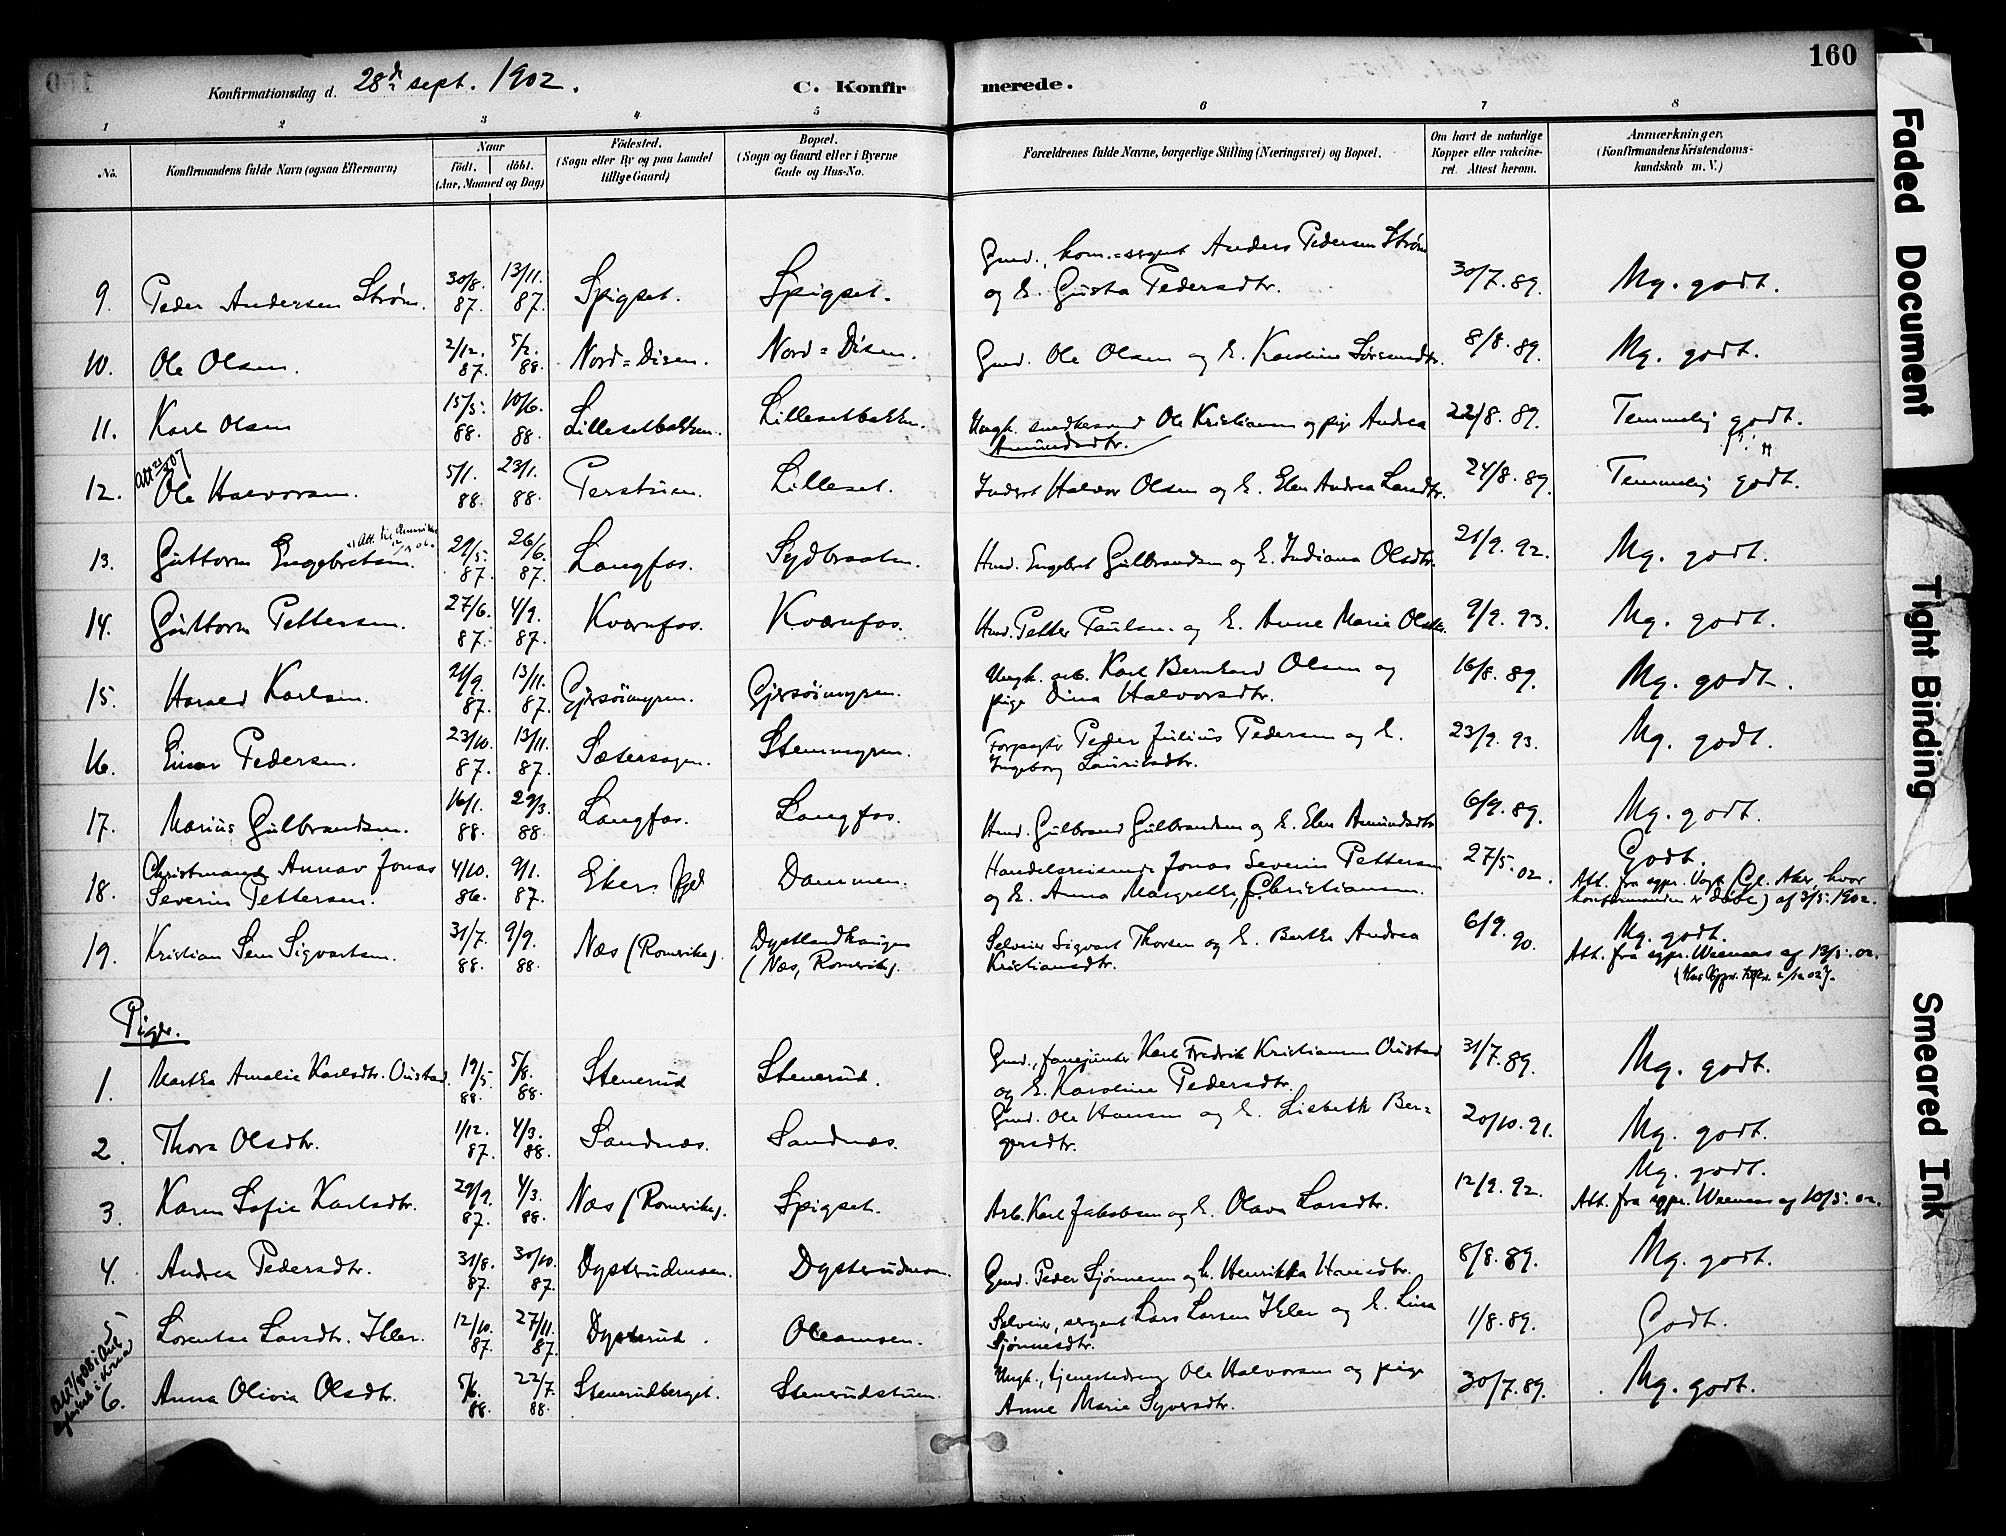 160
Konfirmationsdag d. 28de sept. 1902. C. Konfirmerede.
1 2 3 4 5 6 7 8
No. Konfirmandens fulde Navn (ogsaa Efternavn) Naar født. døbt. (Aar, Maaned og Dag) Fødested. (Sogn eller By og paa Landet tillige Gaard) Bopæl. (Sogn og Gaard eller i Byerne Gade og Hus-No. Forældrenes fulde Navne, borgerlige Stilling (Næringsvei) og Bopæl. Om havt de naturlige Kopper eller vakcineret. Attest herom. Anmærkninger. (Konfirmandens Kristendomskundskab m. V.)
9. Peder Andersen Strøm. 30/8. 87. 13/11. 87. Spigset. Spigset. Gmd., Anders Pedersen Strøm
og E. Gusta Pedersdtr. 30/7. 89. Mg. godt.
10. Ole Olsen. 2/12. 87. 5/2. 88. Nord=Disen. Nord=Disen. Gmd. Ole Olsen og E. Karoline 8/8. 89. Mg. godt.
11. Karl Olsen 15/5. 88. 10/6. 88. Lillesetbakken. Lillesetbakken. Ungk. Ole Kristiansen og pige Andrea
Amundsdtr. 22/8. 89. Temmelig godt.
12. Ole Halvorsen. 5/1. 88. 23/1. 88. Perstuen. Lilleset. Inderst Halvor Olsen og E. Elen Andrea Larsdtr. 24/8. 89. Temmelig godt.
13. Guttorm Engebretsen. 29/5. 87. 26/6. 87. Langfos. Sydbraaten. Hmd. Engebret Gulbrandsen og E. Indiana Olsdtr. 21/9. 92. Mg. godt.
14. Guttorm Pettersen. 27/6. 87. 4/9. 87. Kværnfos. Kværnfos. Hmd. Petter Paulsen og E. Anne Marie Olsdtr. 9/9. 93. Mg. godt.
15. Harald Karlsen. 21/9. 87. 13/11. 87. Gjersøimyren. Gjersøimyren. Ungk. arb. Karl Bernhard Olsen og
pige Dina Halvorsdtr. 16/8. 89. Mg. godt.
16. Einar Pedersen. 23/10. 87. 13/11. 87. Sætersagen. Stemmyren. Forpagter Peder Julius Pedersen og E.
Ingeborg Lauritsdtr. 23/9. 93. Mg. godt.
17. Marius Gulbrandsen. 16/1. 88. 29/3. 88. Langfos. Langfos. Hmd. Gulbrand Gulbrandsen og E. Elen Amundsdtr. 6/9. 89. Mg. godt.
18. Annar Jonas
Severin Pettersen. 4/10. 86. 9/1. 87. Dammen. Handelsreisende Jonas Severin Pettersen
og E. Anna Margrethe, f. Christiansen. 27/5. 02. Godt.
Att. fra sgpr. Vogt (Gl. Aker, hvor
konfirmanden er døbt) af 3/5. 1902.
19. Kristian Sem Sigvartsen. 31/7. 88. 9/9. 88. Næs (Romerike). Dystlandhaugen
(Næs, Romerike). Selveier Sigvart Thorsen og E. Berthe Andrea
Kristiansdtr. 6/9. 90. Mg. godt.
Att. fra sgpr. Weenaas af 13/5. 02.
Piger.
1. Martha Amalie Karlsdtr. Oustad. 19/5. 88. 5/8. 88. Stenerud Stenerud. Gmd., fanejunker Karl Fredrik Kristiansen Oustad
og E. Karoline Pedersdtr. 31/7. 89. Mg. godt.
2. Thora Olsdtr. 1/12. 87. 4/3. 88. Sandnæs. Sandnæs. Gmd. Ole Hansen og E. Lisbeth Ber=
gersdtr. 20/10. 91. Mg. godt.
3. Karen Sofie Karlsdtr. 29/9. 87. 4/3. 88. Næs (Romerike). Spigset. Arb. Karl Jakobsen og E. Olava Larsdtr. 12/9. 92. Mg. godt.
Att. fra sgpr. Weenaas af 10/5. 02.
4. Andrea Pedersdtr. 31/8. 87. 30/10. 87. Dystrudmoen. Dystrudmoen. Gmd. Peder Sjønnesen og E. Henrikka Hansdtr. 8/8. 89. Mg. godt.
5 Lorentse Larsdtr. Ihler. 12/10. 87. 27/11. 87. Dystrud. Oleamoen. Selveier, sergent Lars Larsen Ihler og E. Lina
Sjønnesdtr. 1/8. 89. Godt.
6. Anna Olivia Olsdtr. 5/6. 88. 22/7. 88. Stenerudberget. Stenerudstuen. Ungk., tjenestedreng Ole Halvorsen og pige
Anne Marie Syversdtr. 30/7. 89. Mg. godt.
Faded Document
Tight Binding
Smeared Ink